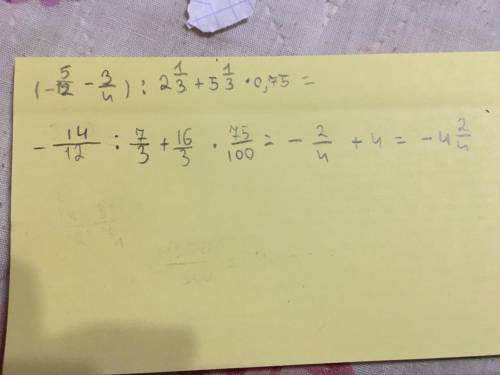 (-5/12 - 3/4) : 2 1/3 + 5 1/3 · 0,75 =
- 14/12 : 7/3 + 16/3 · 75/100 = - 2/4 + 4 = - 4 2/4